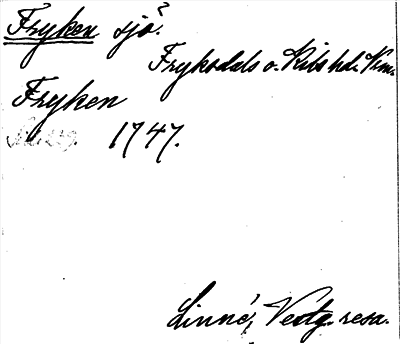 Fryken sjö.
Fryksdals o. Kils hd. Vrm.
Fryken
1747.
Linné, Vestg. resa.